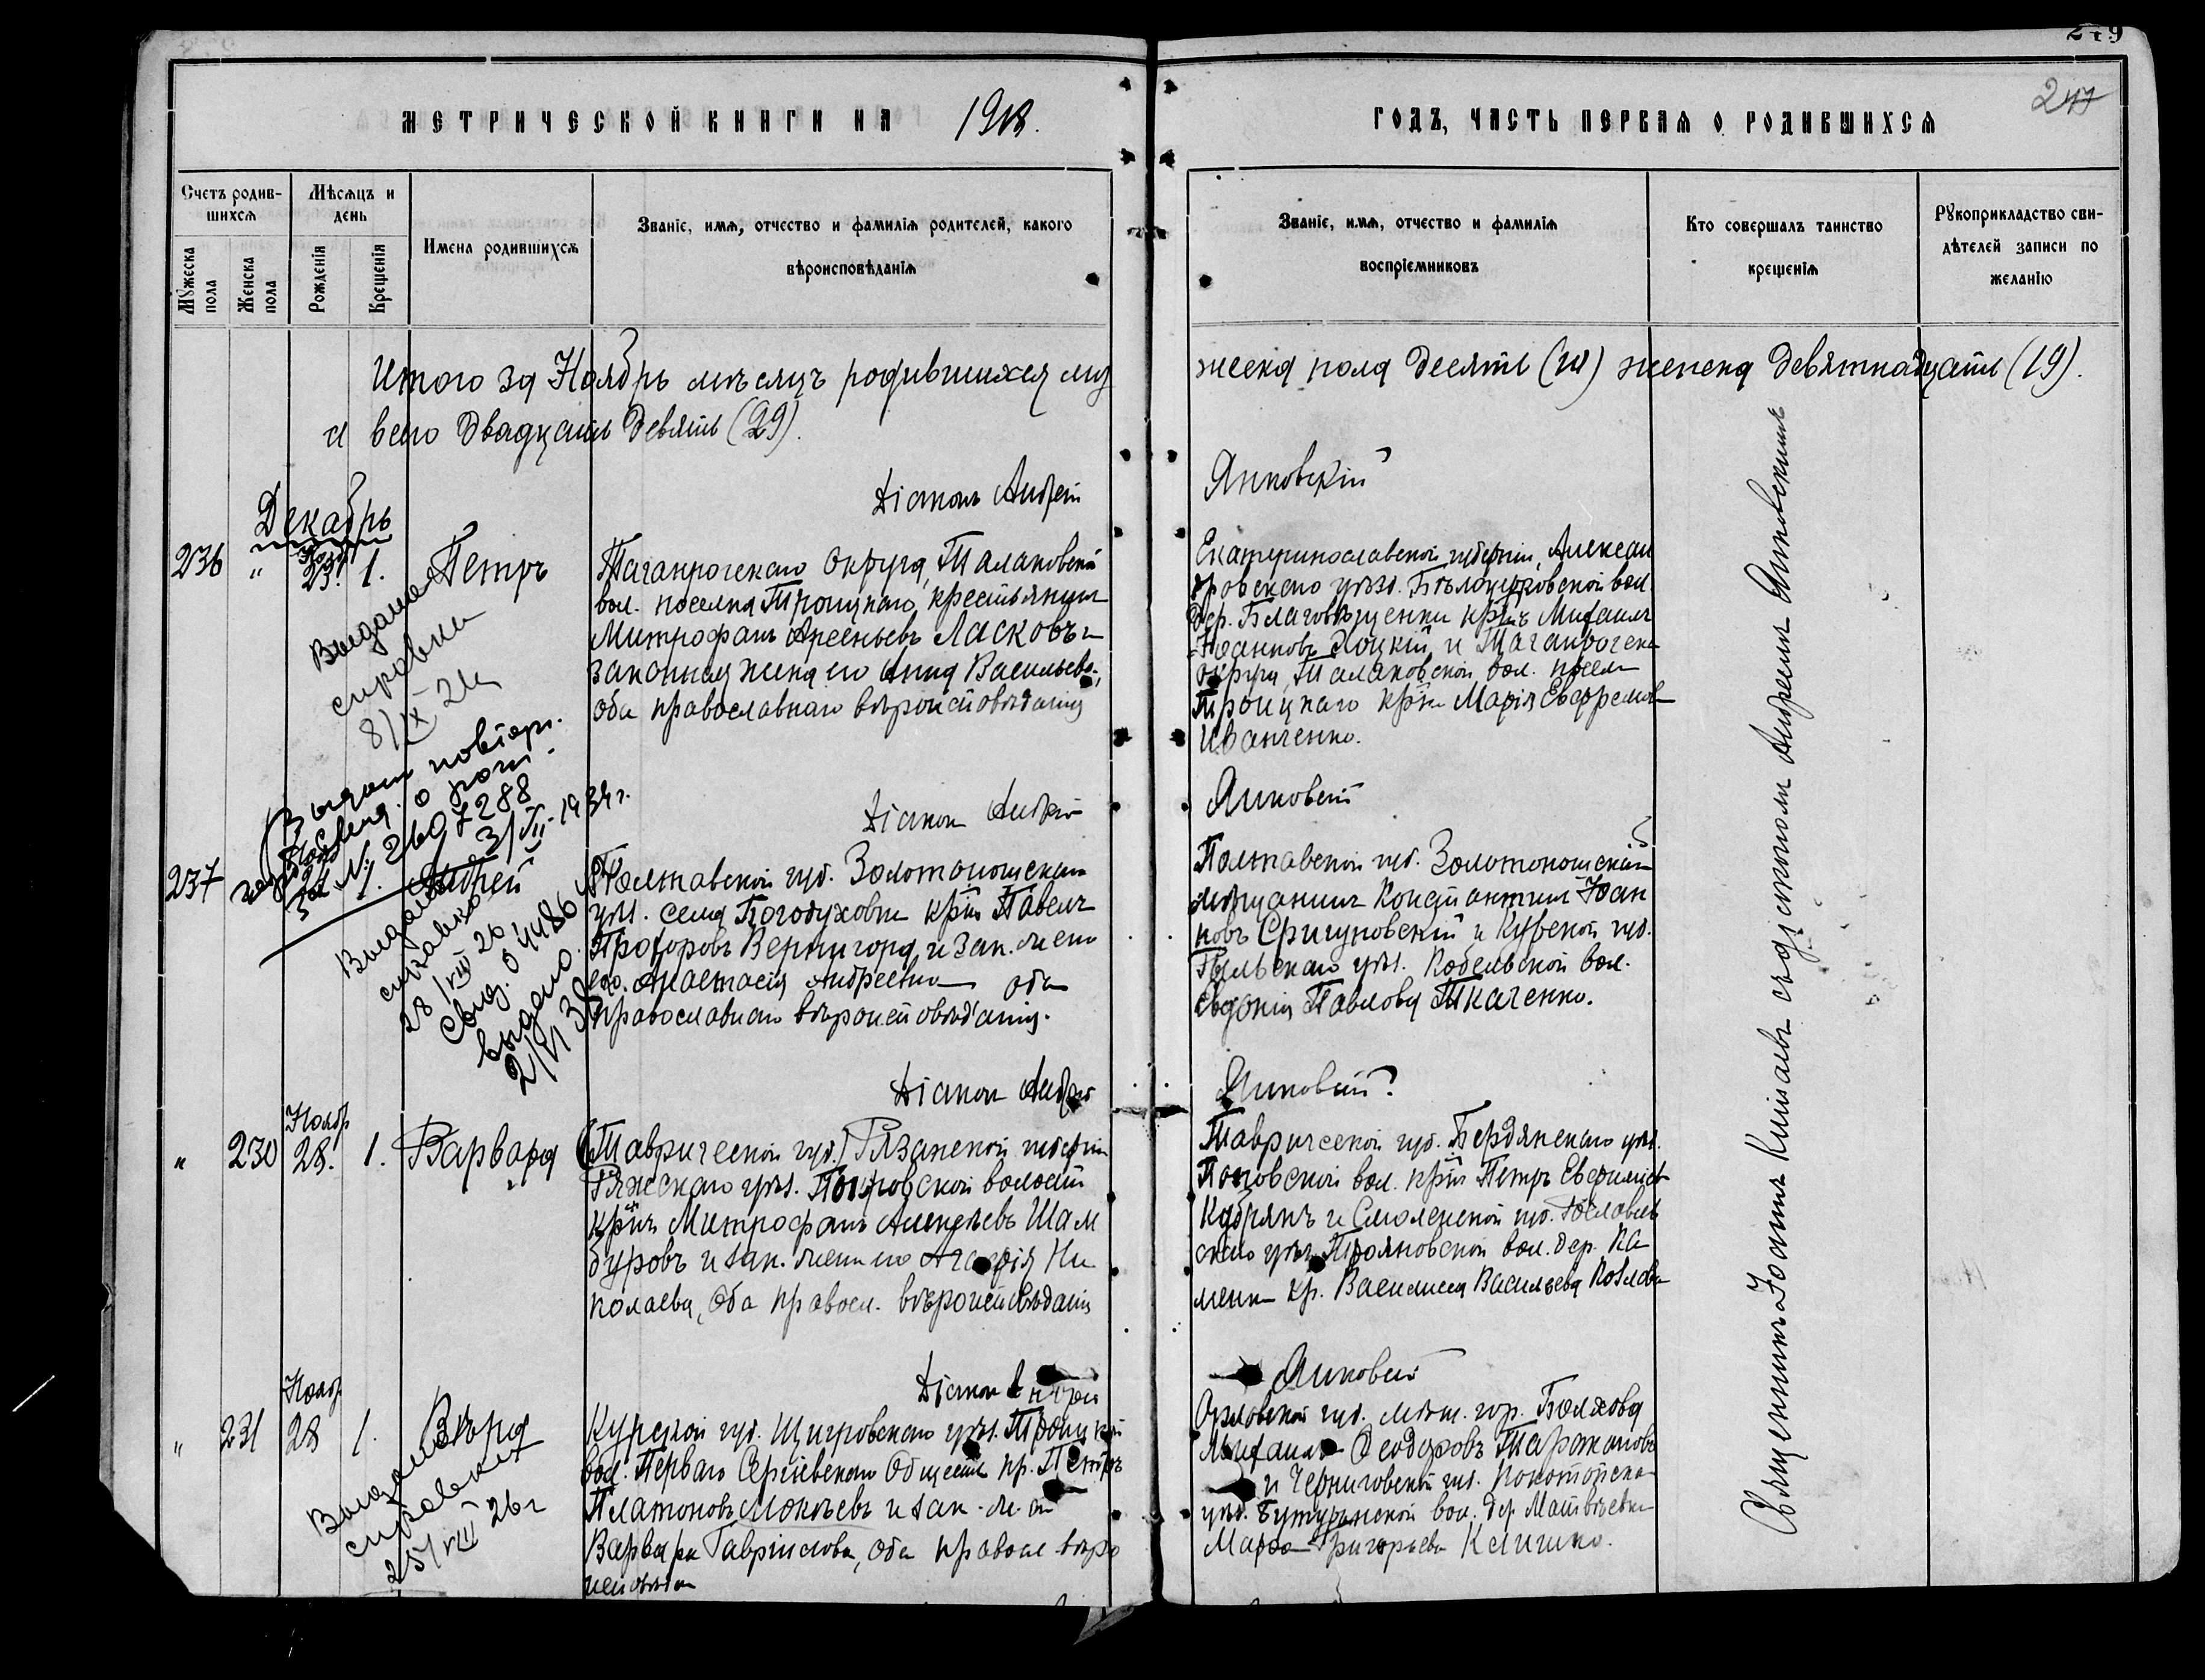 249
247
МЕТРИЧЕСКОЙ КНИГИ НА 1918.
ГОДЪ, ЧАСТЬ ПЕРВАЯ О РОДИВШИХСЯ
Счетъ родив-
шихся
Мѣсяцъ и
день
Мужеска
пола
Женска
пола
Рожденія
Крещенія
Имена родившихся
Званіе, имя, отчество и фамилія родителей, какого
вѣроисповѣданія
Званіе, имя, отчество и фамилія
воспріемниковъ
Кто совершалъ таинство
крещенія
Рукоприкладство сви-
дѣтелей записи по
желанію
Итого за Ноябрь мѣсяцъ родившихся му
жеска пола десять (10) женска девятнадцать (19).
а всего двадцать девять (29).
Діаконъ Андрей
Янковскій
Декабрь
236 " Нояб. 23. 1. Петръ
Таганрогскаго Округа, Талаковской
вол. поселка Троицкаго, крестьянинъ
Митрофанъ Арсеньевъ Ласковъ и
законная жена его Анна Васильева,
оба православнаго вѣроисповѣданія
Екатеринославской губерніи, Алексан
дровскаго уѣзд. Бѣлоцерковской вол.
дер. Благовѣщенки кр-нъ Михаилъ
Іоанновъ и Таганрогск.
округа, Талаковской вол. посел.
Троицкаго кр-ка Марія Евфремова
Иванченко.
Выдана
справка
8/IX 21г
Діаконъ Андрей
Янковскій
Выдано повторн.
свид. о рожд.
№ 2607288
3/VII-1934г.
237 1. Андрей
Полтавской губ. Золотоношскаго
уѣз. села Богодуховки кр-нъ Павелъ
Прохоровъ Вернигора и зак. жена
его Анастасія Андреевна оба
православнаго вѣроисповѣданія.
Полтавской губ. Золотоношскій
мѣщанинъ Константинъ Іоан
новъ Сригуновскій и Курской губ.
уѣз. вол.
Евдокія Павлова Ткаченко.
Выдана
справка
28/VIII 26
Свид. 04486
выдано
2/VI 38
Діаконъ Андрей
Янковскій
" 230 Нояб 28. 1. Варвара
(Таврической губ.) Рязанской губерніи
Ряжскаго уѣз. Покровской волости
кр-нъ Митрофанъ Алексѣевъ Шам
буровъ и зак. жена его Агафія Ни
колаева, оба правосл. вѣроисповѣданія
Таврической губ. Бердянскаго уѣз.
Поповской вол. кр-нъ Петръ Евфиміевъ
Кобрянъ и Смоленской губ. Рославль
скаго уѣз. Трояновской вол. дер. Ка
менка кр. Василиса Васильева Козлова
Діаконъ Андрей
Янковскій
" 231 Нояб 28 1. Вѣра
Курской губ. Щигровскаго уѣз. Троицкой
вол. Перваго Сергіевскаго Общества кр. Петръ
Платоновъ Мокѣевъ и зак. ж. его
Варвара Гавріилова, оба правосл вѣро
исповѣдан
Орловской губ. мѣщ. гор. Болхова
Михаилъ Феодоровъ Таракановъ
и Черниговской губ. Конотопска
уѣз. Бутуринской вол. дер Матвѣевки
Марѳа Григорьева
Выдана
справка
25/VIII 26г
Священникъ Іоаннъ съ діакономъ Андреемъ Янковскимъ